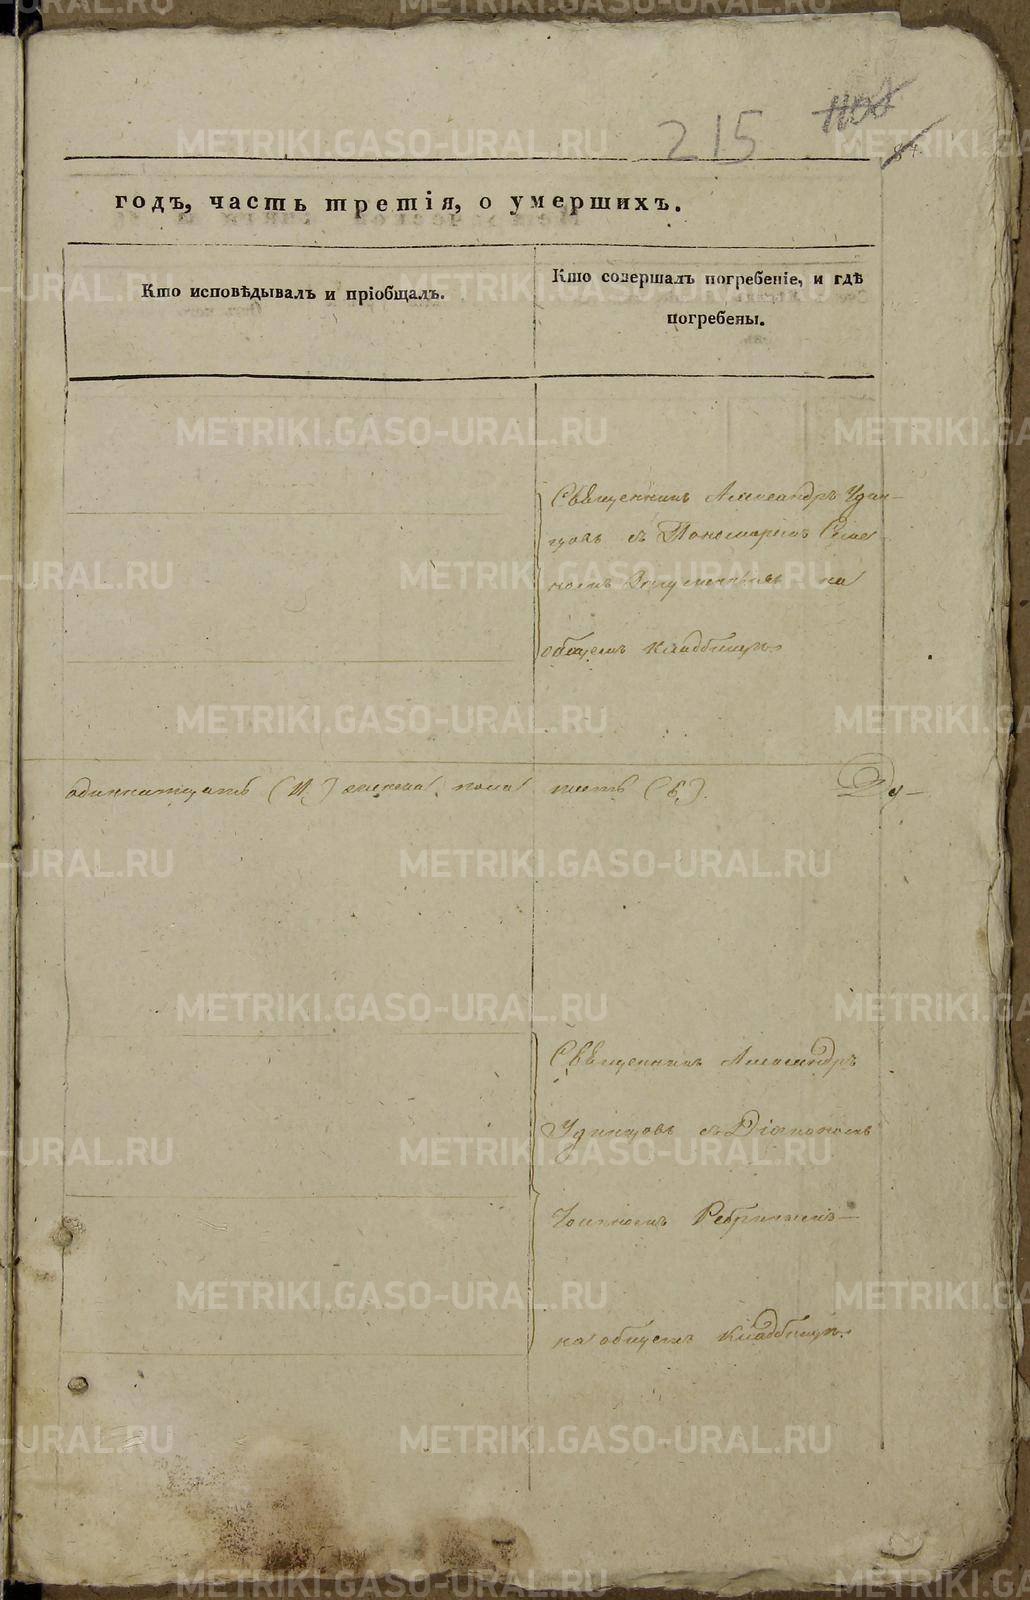 215
годъ, часть третія, о умершихъ.
Кто исповѣдывалъ и пріобщалъ.
Кто совершалъ погребеніе, и гдѣ
погребены.
Священникъ Александръ Удин-
цовъ съ Пономаремъ
на
общемъ кладбищѣ.
одиннатцать (11.) женска пола шесть (6.). Ду-
Священникъ Александръ
Удинцовъ съ Діакономъ
Іоанномъ
на общемъ кладбищѣ.
METRIKI.GASO-URAL.RU